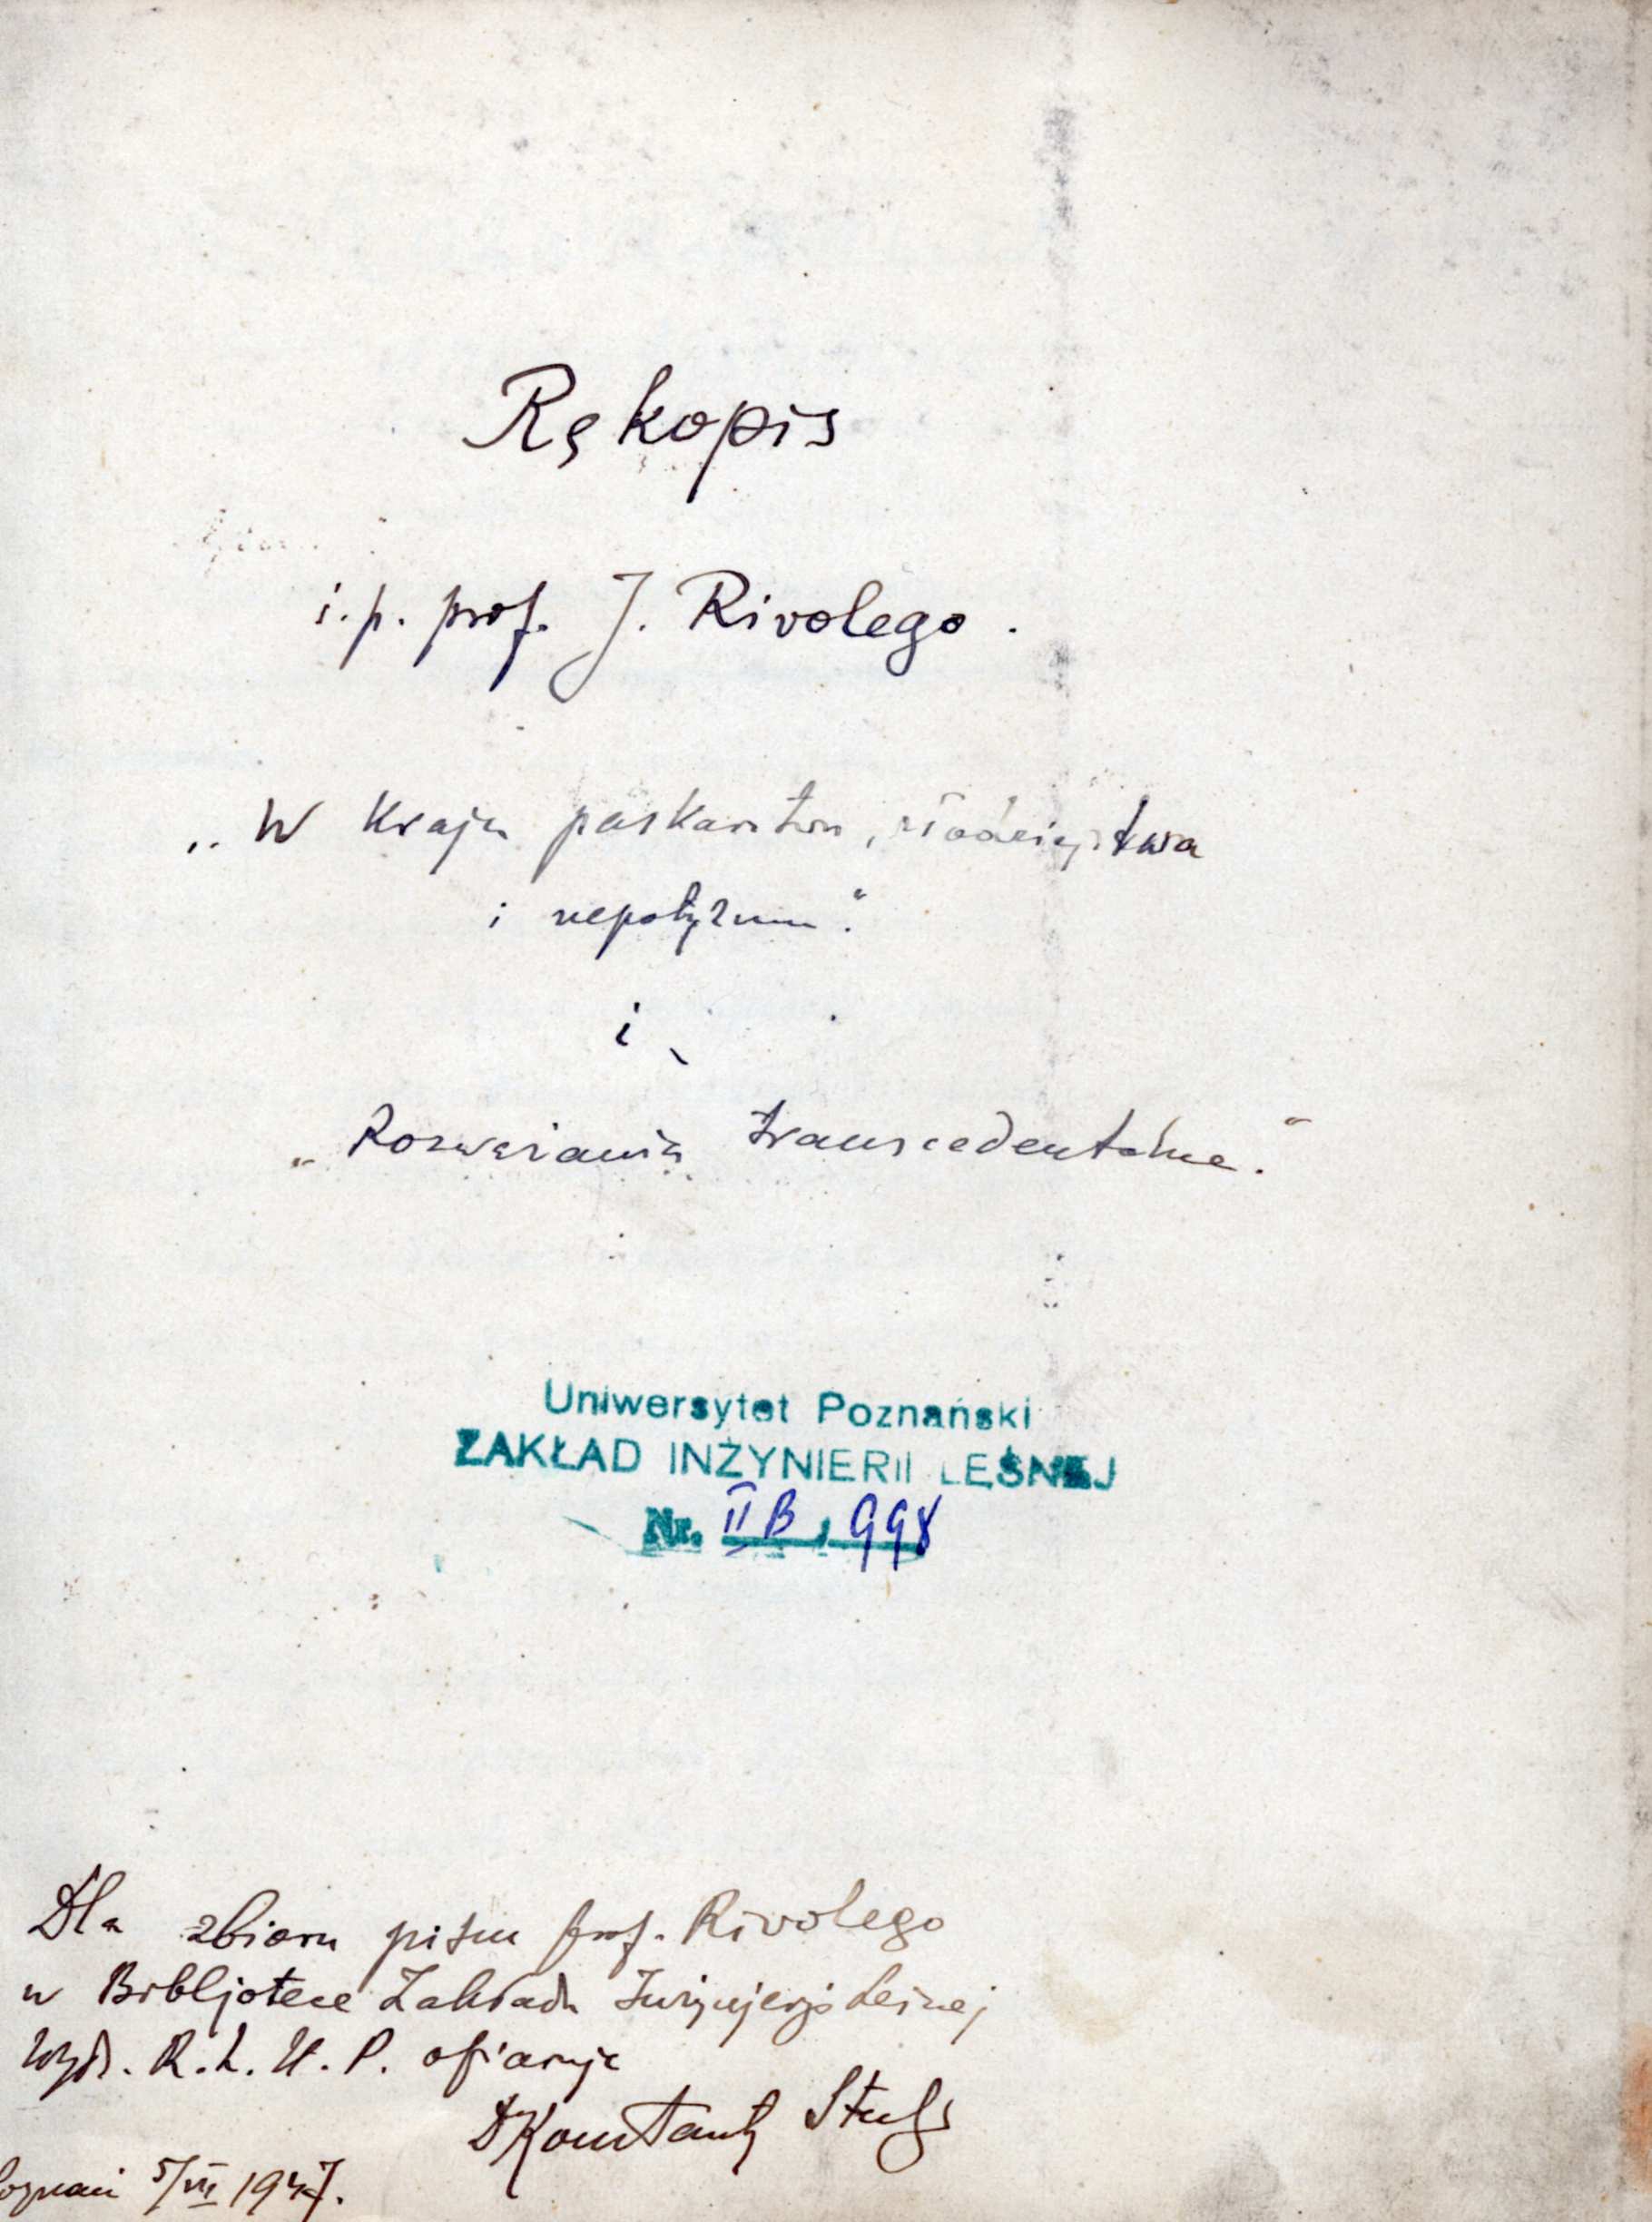 Rękopis
ś.p. prof. J. Rivolego.
„W kraju paskarstwa, złodziejstwa
i nepotyzmu".
i
„Rozważania transcedentalne."
Uniwersytet Poznański
ZAKŁAD INŻYNIERII LEŚNEJ
Nr. II B, 998
Dla zbioru pism prof. Rivolego
w Bibljotece Zakładu Inżynjerji Leśnej
Wydz. R. L. U. P. ofiaruje
Konstanty
Poznań 5/VII 1947.